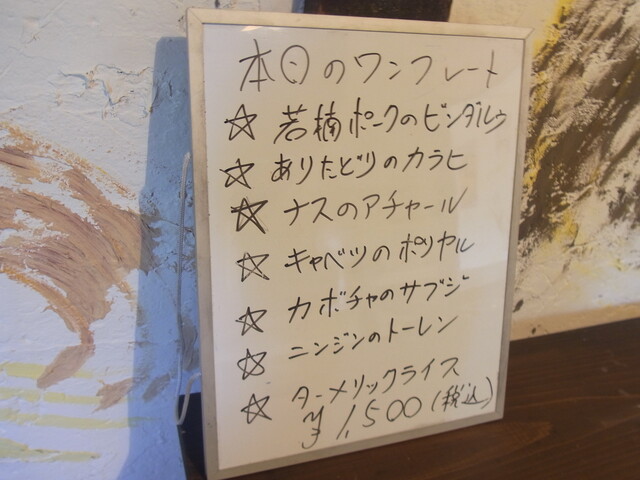 本日のワンプレート
☆ 若楠ポークのビンダルゥ
☆ ありたどりのカラヒ
☆ ナスのアチャール
☆ キャベツのポリヤル
☆ カボチャのサブジ
☆ ニンジンのトーレン
☆ ターメリックライス
¥1,500(税込)